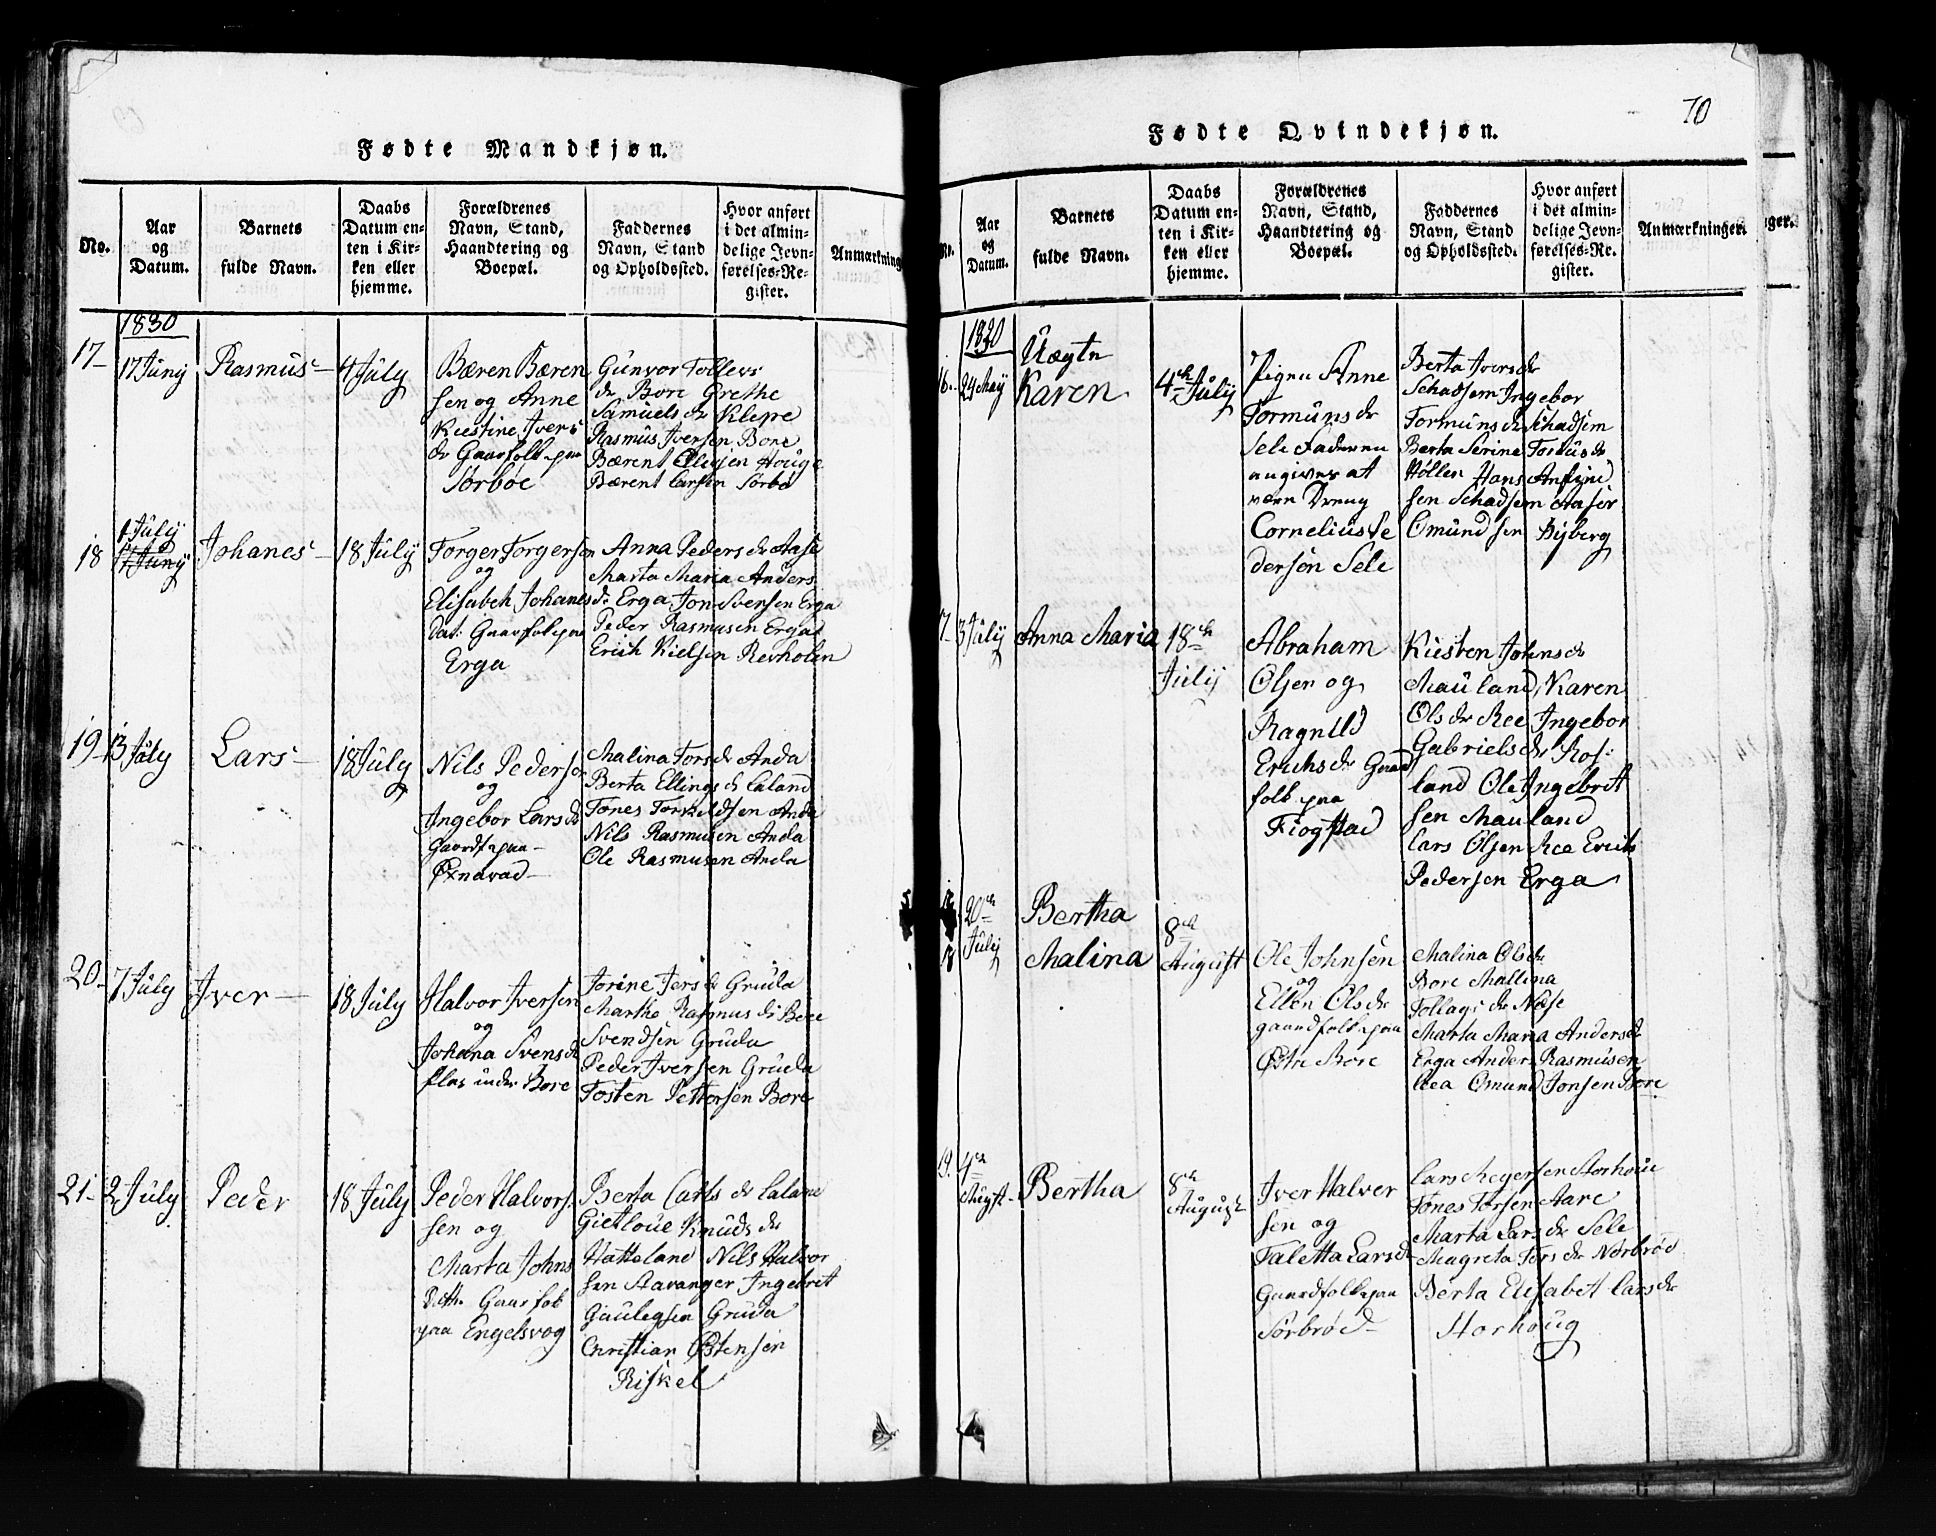 Fødte Mandkjøn.
No.
Aar
og
Datum.
Barnets
fulde Navn.
Daabs
Datum en-
ten i Kir-
ken eller
hjemme.
Forældrenes
Navn, Stand,
Haandtering og
Boepæl.
Faddernes
Navn, Stand
og Opholdssted.
Hvor anført
i det almin-
delige Jevn-
førelses-Re-
gister.
Anmærkning
1830
17
17 Junij
Rasmus
4 July
Bæren Bæren
sen og Anne
Kiestine Ivers
dr Gaarfolk paa
Sørbøe
Gunvor Tollevs
dr Bore Grethe
Samuels dr Klepe
Rasmus Iversen Bore
Bærent Olevsen Houge
Bærent Larsen Sørbø
18
1 July
17 Junij
Johanes
18 July
Torger Torgersen
og
Elisabeh Johanes
dat: Gaarfolk paa
Erga
Anna Peders dr Aase
Marta Maria Anders
dr Erga Jon Sversen Erga
Peder Rasmusen Erga
Erich Kielsen Revholen
19
13 July
Lars
18 July
Nils Pedersen
og
Ingebor Lars dr
Gaardf paa
Øxnavad
Malina Tors dr Anda
Berta Ellings d Laland
Tones Torkildsen Anda
Nils Rasmusen Anda
Ole Rasmusen Anda
20
7 July
Iver
18 July
Halvor Iversen
og
Johana Svens dr
Bore
Torine Ters d Gruda
Marthe Rasmus dr Bore
Svendsen Gruda
Peder Iversen Gruda
Tosten Pettersen Bore
21
2 July
Peder
18 July
Peder Halvors
sen og
Marta Johns
Gaarfolk
paa Engelsvog
Berta Carls dr Laland
Gietloue Knuds dr
Hatteland Nils Halvor
sen Stavanger Ingebret
Gaulegsen Gruda
Christian Østensen
Riskel
70
Fødte Qvindekjøn.
No.
Aar
og
Datum.
Barnets
fulde Navn.
Daabs
Datum en-
ten i Kir-
ken eller
hjemme.
Forældrenes
Navn, Stand,
Haandtering og
Boepæl.
Faddernes
Navn, Stand
og Opholdssted.
Hvor anført
i det almin-
delige Jevn-
førelses-Re-
gister.
Anmærkninger.
nger.
1830
16
24 May
Uægte
Karen
4de July
Pigen Anne
Tormuns dr
Sele Faderen
angives at
være Dreng
Cornelius Pe
dersøn Sele
Berta Ivers dr
Schadsem Ingebor
Tormuns dr Schadsem
Berta Serine Tostus dr
Høllen Hans Anfin
sen Schadsem
Omundsen Byberg
7
3 July
Anna Maria
18de
July
Abraham
Olsen og
Ragnild
Erichs dr Gaard
folk paa
Fiogstad
Kiesten Johns dr
Mauland, Karen
Ols dr Ree Ingebor
Gabriels dr Ros-
land Ole Ingebrit
sen Mauland
Lars Olsen Ree Erich
Pedersen Erga
20de
July
Bertha
Malina
8de
August
Ole Johnsen
og
Ellen Ols dr
gaardfolk paa
Østre Bore
Malina Ols dr
Bore Mallina
Tollags dr Næse
Marta Maria Anders dr
Erga Anders Rasmusen
Rea Omund Jonsen Bore
19.
4de
Augst
Bertha
8de
August
Iver Halver
sen og
Taletta Lars dr
Gaardfolk paa
Sørbrød
Lars Meyersen Storhoue
Tones Torsen Aare
Marta Lars dr Sele
Magreta Tors dr Nørbrød
Berta Elisabet Lars dr
Storhoug